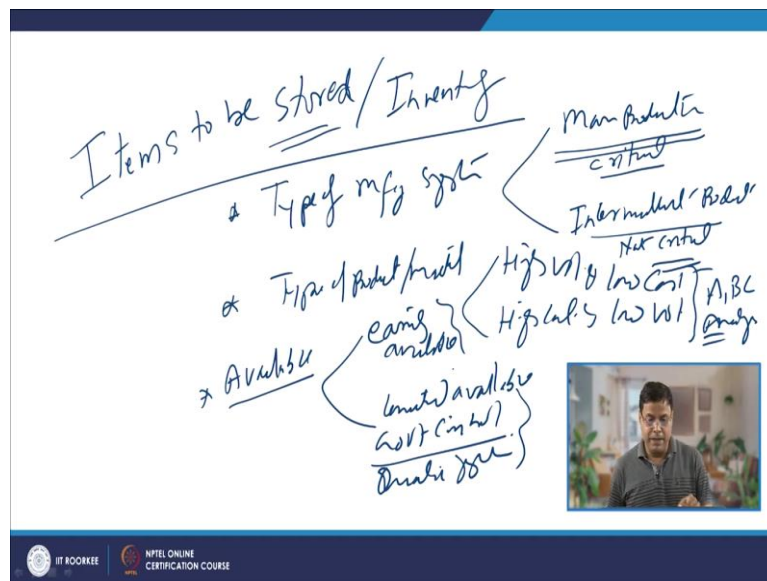 Items to be stored / Inventory
* Type of mfg system
Mass Production
critical
Intermittent Product
Not critical
* Type of Product/
High vol & low Cost
High Cost & low vol
A, BC
Analys
* Available
easily
available
limited available
Govt Control
IIT ROORKEE
NPTEL ONLINE
CERTIFICATION COURSE